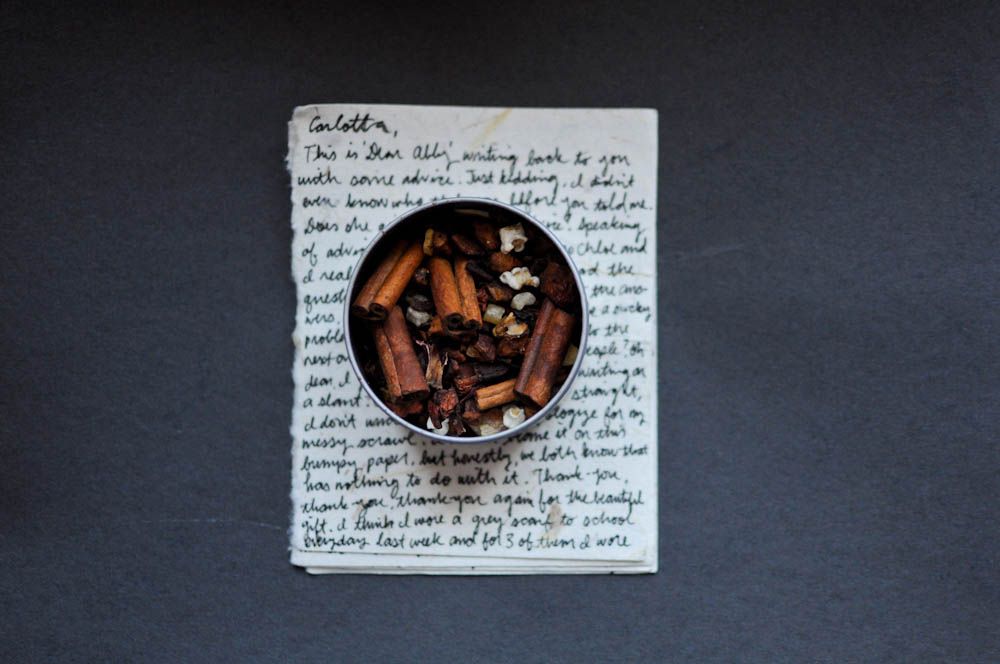 Carlotta,
This is 'Dear Abby' writing back to you
with some advice. Just kidding, I didn't
even know who before you told me.
Does she Speaking
of Chloe and
I real the
quest the ans-
wers. a sucky
proble the
next people? Oh
dear, I writing on
a slant. straight,
I don't for my
messy scrawl. blame it on this
bumpy paper, but honestly, we both know that
has nothing to do with it. Thank-you,
thank-you, thank-you again for the beautiful
gift. I think I wore a grey scarf to school
everyday last week and for 3 of them I wore